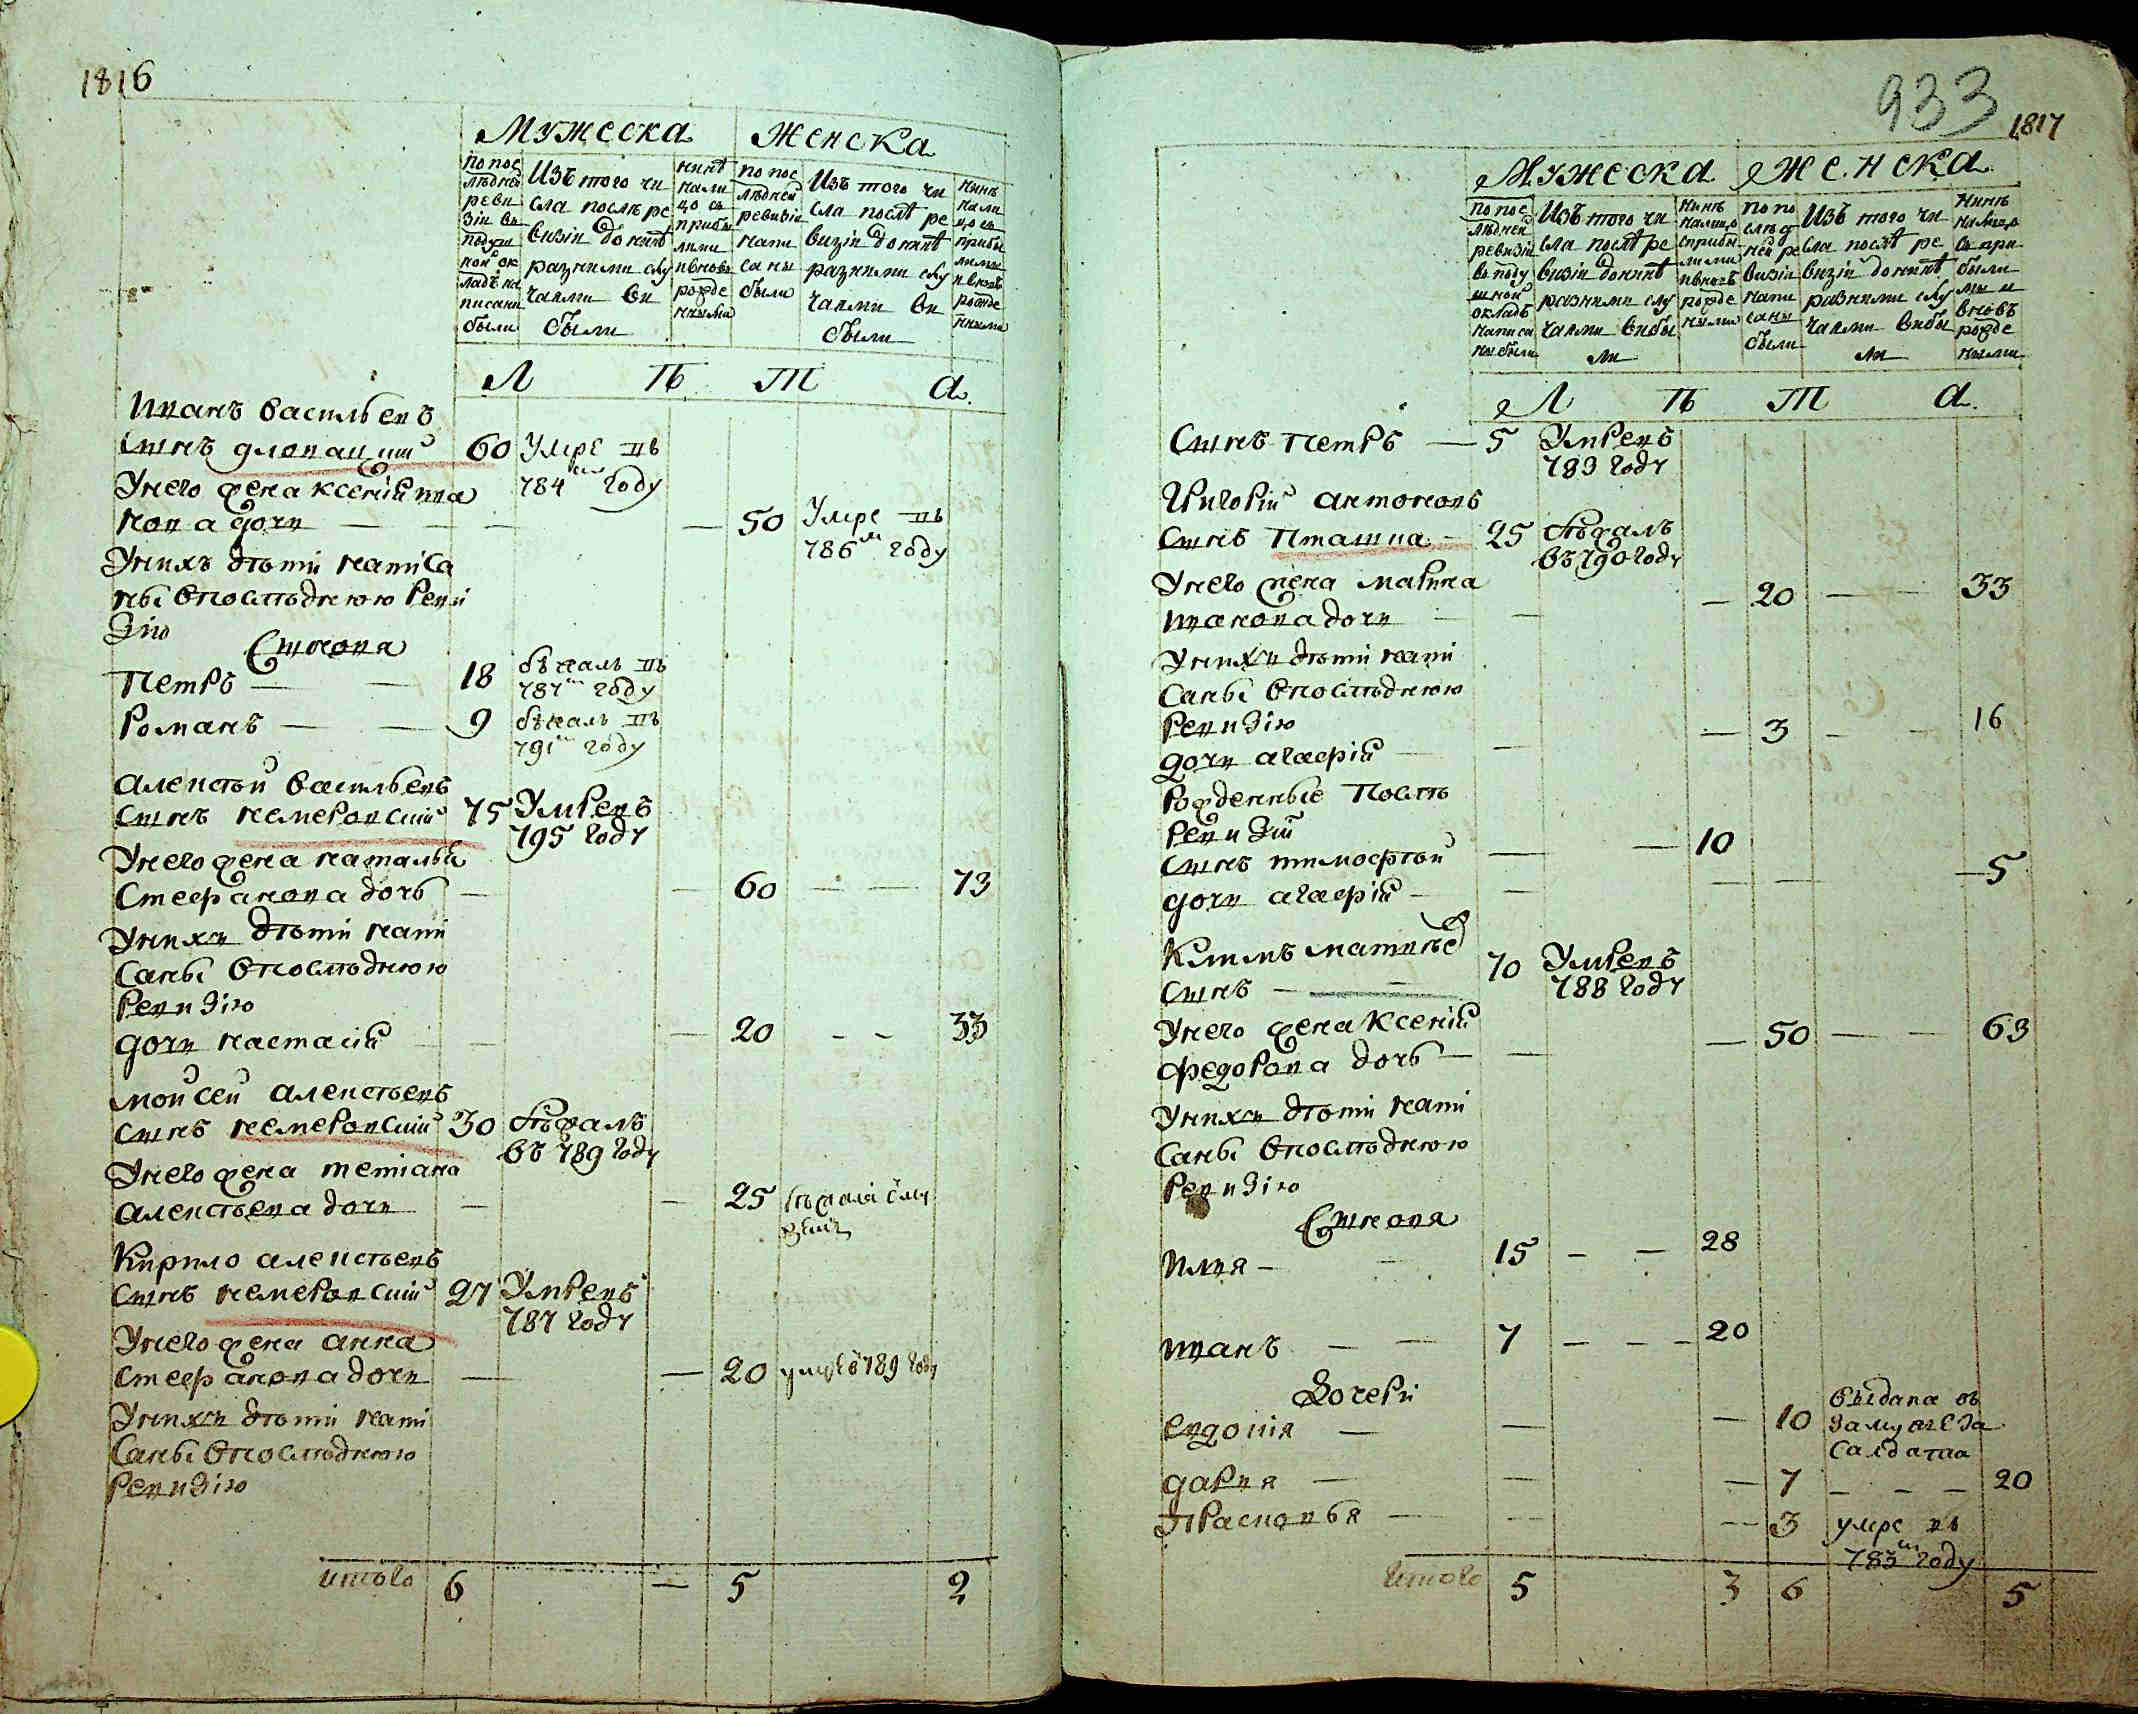 1816
Мужеска
Женска
по пос
лѣдней
реви
зіи въ
подуш
ной ок
ладъ на
писаны
были
Изъ того чи
сла послѣ ре
визіи до нинѣ
разными слу
чаями вы
были
нинѣ
нали
цо съ
прибы
лыми
и вновь
рожде
нными
по пос
лѣдней
ревизіи
напи
саны
были
Изъ того чи
сла послѣ ре
визіи до нинѣ
разними слу
чаями вы
были
нинѣ
нали
цо съ
прибы
лими
и вновь
рожде
нними
Л ѣ т а
Иванъ васильевъ
сынъ
60
Умре въ
784м году
Унего жена ксенія ива
нова дочи
50
Умре въ
786м году
Унихъ дѣти написа
ны впослѣднюю реви
зію
Сынови
Петръ
18
бѣжалъ въ
787м году
Романъ
9
бѣжалъ въ
791м году
Алексѣй васильевъ
сынъ кемеровский
75
Умревъ
795 году
Унего жена наталия
Стефанова дочь
60
73
Унихъ дѣти напи
саны впослѣднюю
ревизію
дочи настасия
20
33
Мойсей алексѣевъ
сынъ кемеровский
30
бѣжалъ
въ 789 году
Унего жена тетиана
алексѣева дочи
25
Кирило алексѣевъ
сынъ кемеровский
27
Умревъ
787 году
Унего жена анна
Стефанова дочи
20
умре в 789 году
Унихъ дѣти напи
саны впослѣднюю
ревизію
итого
6
5
2
933
1817
Мужеска
Женска
по пос
лѣдней
ревизіи
въ поду
шной
окладъ
написа
ны были
Изъ того чи
сла послѣ ре
визіи до нинѣ
разними слу
чаями вибы
ли
нинѣ
налицо
с прибы
лими
и вновь
рожде
ными
по по
слѣд
ней ре
визіи
напи
саны
были
Изъ того чи
сла послѣ ре
визіи до нинѣ
разними слу
чаями вибы
ли
нинѣ
налицо
съ при
были
ми и
вновь
рожде
ными
Л ѣ т а
Сынъ Петръ
5
Умревъ
783 году
Григорій антоновъ
сынъ
25
бѣжалъ
въ 790 году
Унего жена марина
иванова дочи
20
33
Унихъ дѣти напи
саны впослѣднюю
ревизію
дочи агафія
3
16
Рожденные послѣ
ревизіи
сынъ тимофѣй
10
дочи агафія
5
Климъ матвѣев
сынъ
70
Умревъ
788 году
Унего жена ксенія
федорова дочь
50
63
Унихъ дѣти напи
саны впослѣднюю
ревизію
Сынови
Илия
15
28
иванъ
7
20
Дочери
Евдокия
10
выдана въ
замужее за
салдата
дария
7
20
Прасковья
3
умре въ
783м году
Итого
5
3
6
5